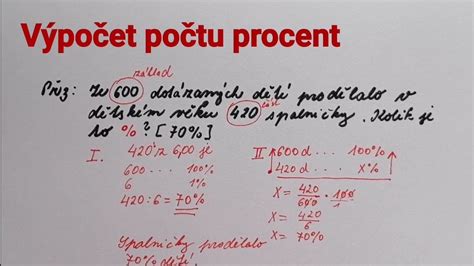 Výpočet počtu procent
základ
Př.: Ze 600 dotázaných dětí prodělalo v
část
dětském věku 420 spalničky. Kolik je
to %? [70%]
I. 420 z 600 je
600 ... 100%
6 1%
420 : 6 = 70%
II. 600 d ... 100%
420 d ... x%
x = 420/600 · 100/1
x = 420/6
x = 70%
Spalničky prodělalo
70% dětí.